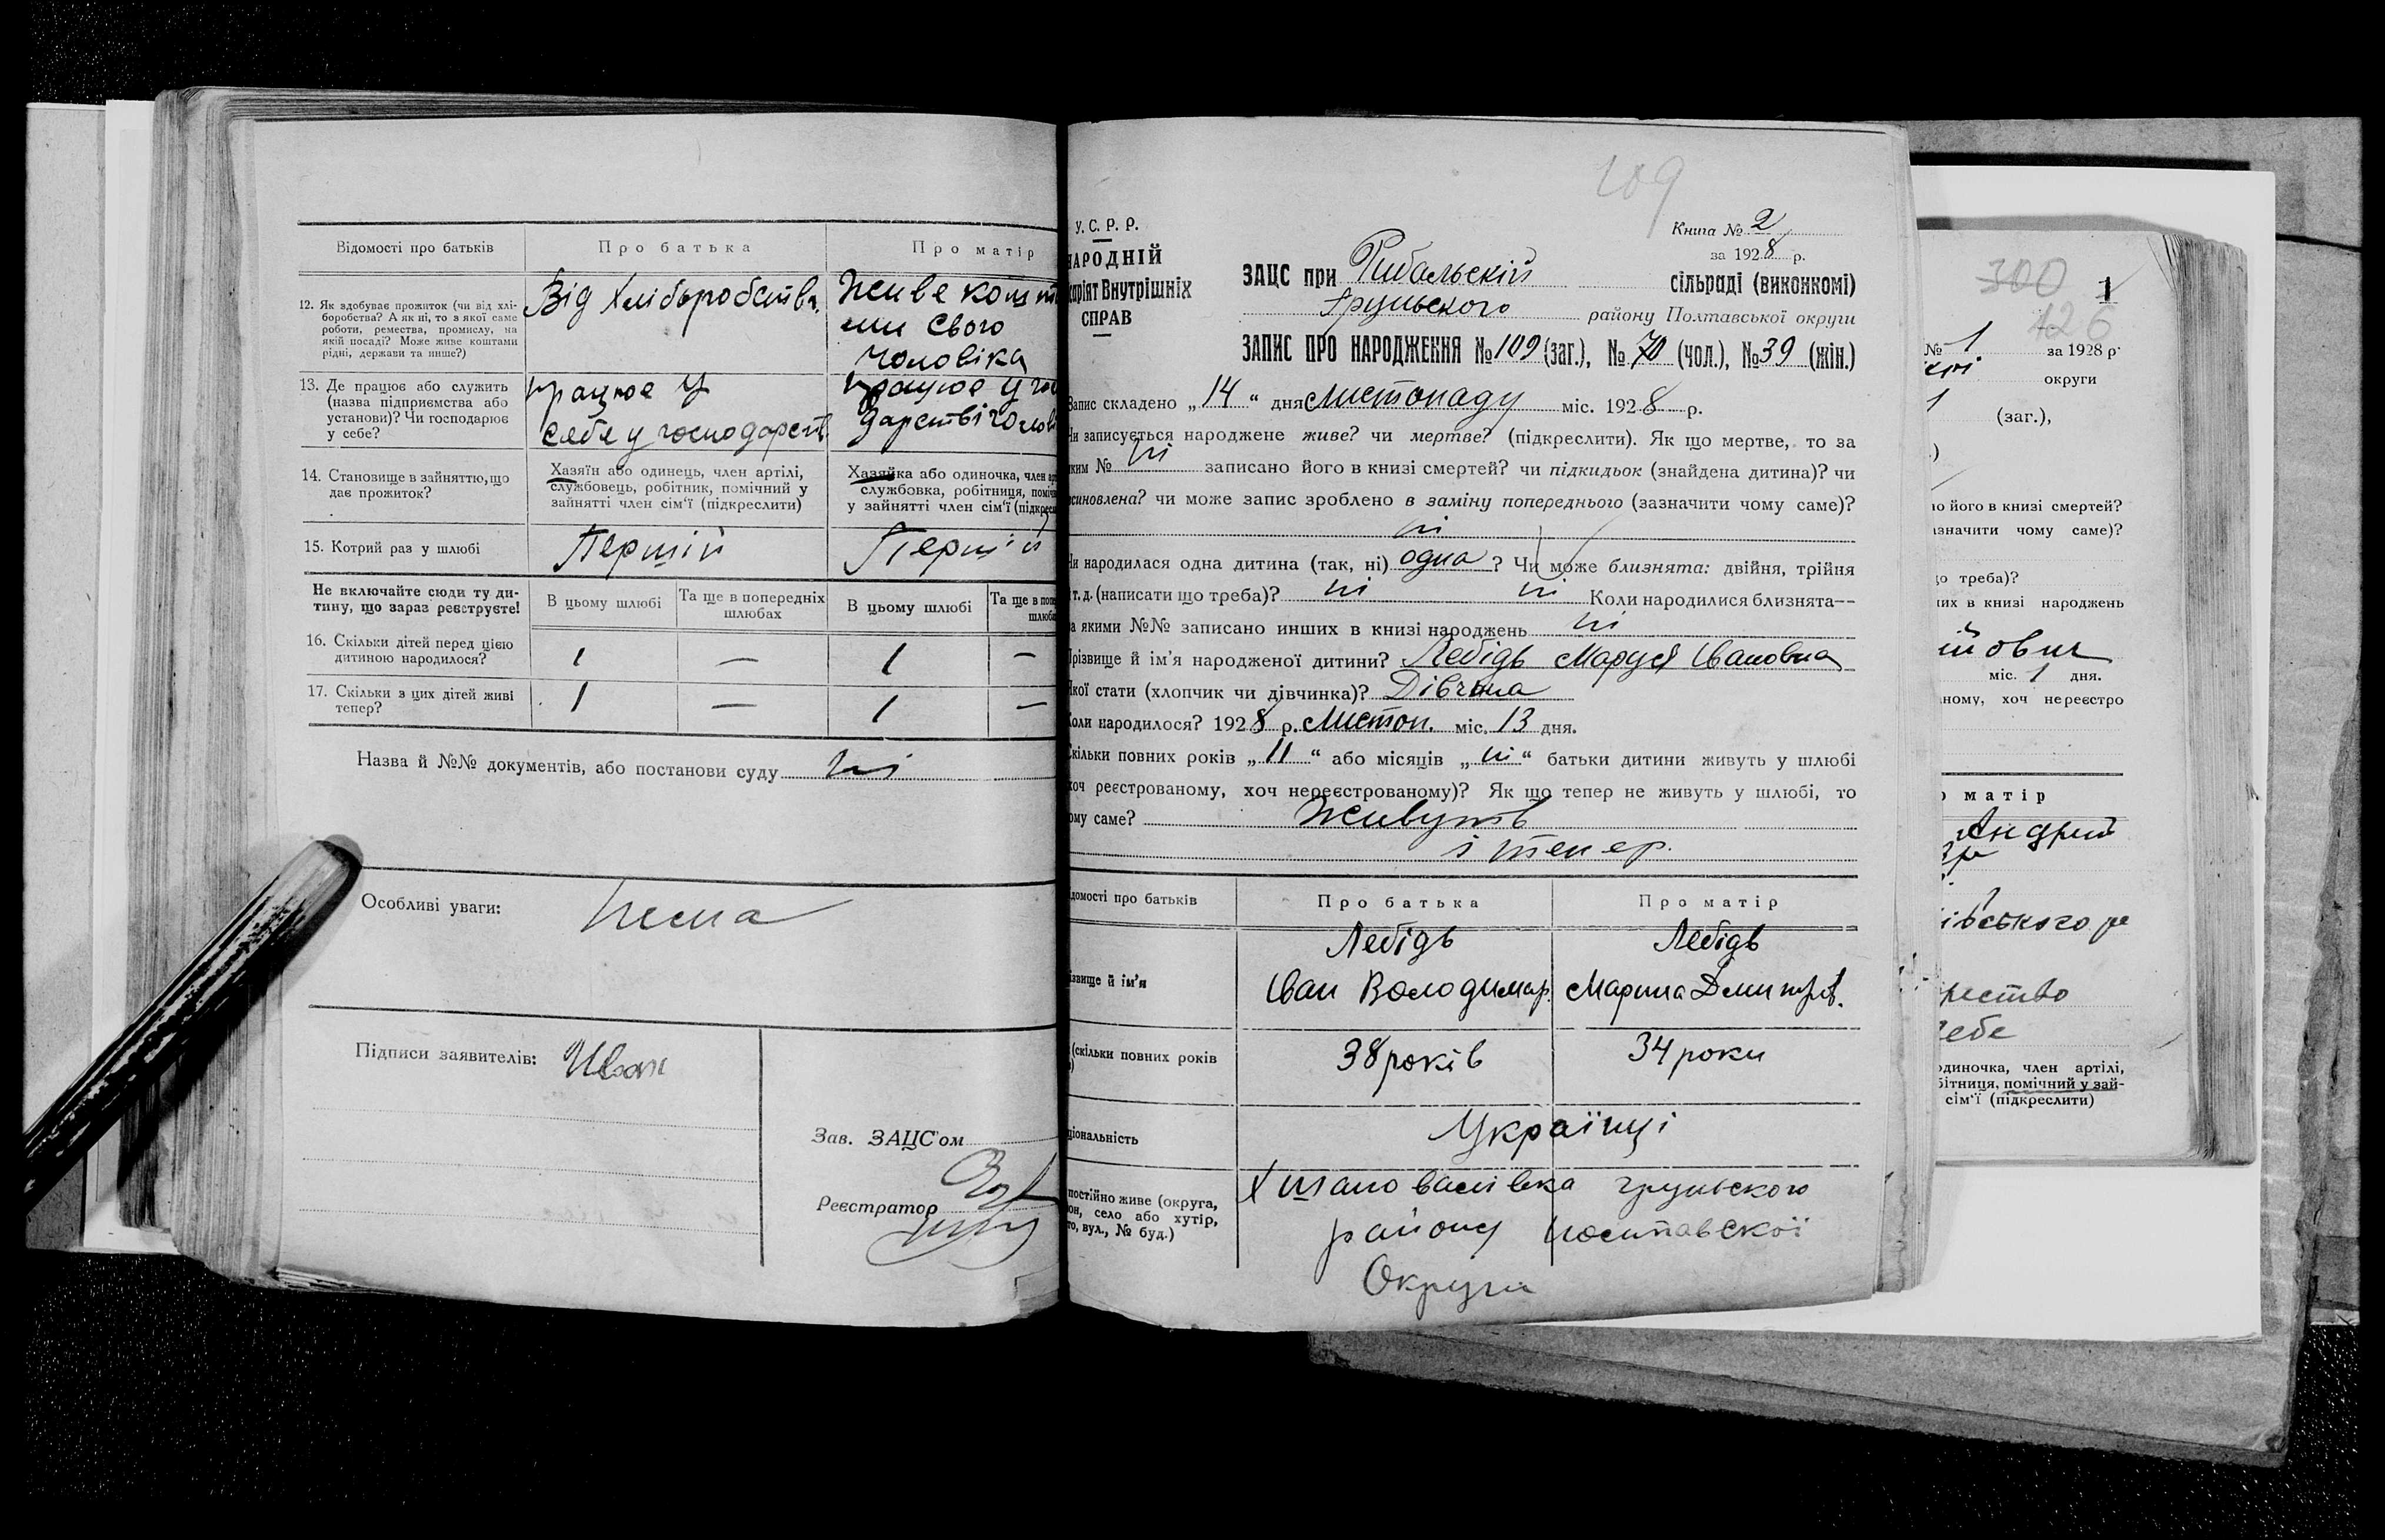 Відомості про батьків
Про батька
Про матір
12. Як здобуває прожиток (чи від хлі-
боробства? А як ні, то з якої саме
роботи, ремества, промислу, на
якій посаді? Може живе коштами
рідні, держави та инше?)
Від Хліборобства.
Живе кошта
ми свого
чоловіка
13. Де працює або служить
(назва підприємства або
установи)? Чи господарює
у себе?
працює у
себе у господарств.
працює у гос
дарстві чолов
14. Становище в зайняттю, що
дає прожиток?
Хазяїн або одинець, член артілі,
службовець, робітник, помічний у
зайнятті член сім'ї (підкреслити)
Хазяйка або одиночка, член
службовка, робітниця,
у зайнятті член сім'ї
15. Котрий раз у шлюбі
Перший
Перший
Не включайте сюди ту ди-
тину, що зараз реєструєте!
В цьому шлюбі
Та ще в попередніх
шлюбах
В цьому шлюбі
Та ще в
16. Скільки дітей перед цією
дитиною народилося?
1 — 1 —
17. Скільки з цих дітей живі
тепер?
1 — 1 —
Назва й №№ документів, або постанови суду ні
Особливі уваги: нема
Підписи заявителів: Иван
Зав. ЗАЦС'ом
Реєстратор
109
У.С.Р.Р.
НАРОДНІЙ
Внутрішніх
СПРАВ
Книга № 2
за 1928 р.
ЗАЦС при Рибальскій сільраді (виконкомі)
Грунського району Полтавської округи
ЗАПИС ПРО НАРОДЖЕННЯ № 109 (заг.), № 70 (чол.), № 39 (жін.)
Запис складено „14“ дня Листопаду міс. 1928 р.
Чи записується народжене живе? чи мертве? (підкреслити). Як що мертве, то за
яким № ні записано його в книзі смертей? чи підкидьок (знайдена дитина)? чи
усиновлена? чи може запис зроблено в заміну попереднього (зазначити чому саме)?
ні
Чи народилася одна дитина (так, ні) одна? Чи може близнята: двійня, трійня
і т. д. (написати що треба)? ні ні Коли народилися близнята—
за якими №№ записано инших в книзі народжень ні
Прізвище й ім'я народженої дитини? Лебідь Маруся Івановна
Якої стати (хлопчик чи дівчинка)? Дівчина
Коли народилось? 1928 р. Листоп. міс. 13 дня.
Скільки повних років „11“ або місяців „ні“ батьки дитини живуть у шлюбі
хоч реєстрованому, хоч нереєстрованому)? Як що тепер не живуть у шлюбі, то
чому саме? Живуть
і тепер.
домості про батьків
Про батька
Про матір
ізвище й ім'я
Лебідь
Іван Володимир.
Лебідь
Марина Дмитрів.
(скільки повних років
38 років
34 роки
ціональність
Українці
постійно живе (округа,
он, село або хутір,
то, вул., № буд.)
грунського
району Полтавскої
Округи
300
1
126
№ 1 за 1928 р.
округи
1 (заг.),
ю його в книзі смертей?
азначити чому саме)?
що треба)?
них в книзі народжень
йович
міс. 1 дня.
ному, хоч нереєстро
о матір
Андрий
івського ра
себе
одиночка, член артілі,
бітниця, помічний у зай-
сім'ї (підкреслити)